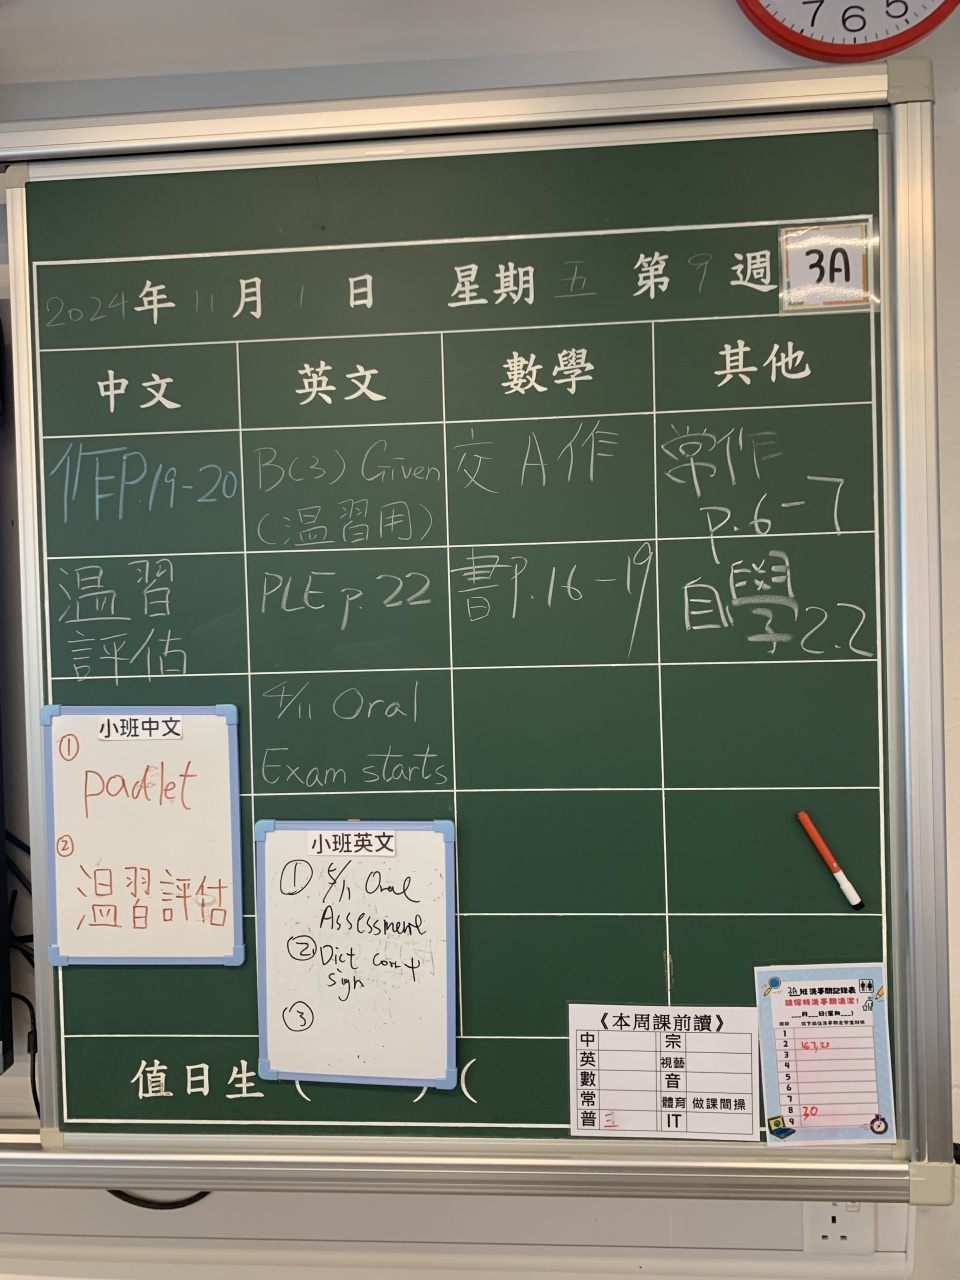 7 6 5
2024年 11月 1日 星期五 第9週 3A
中文 英文 數學 其他
作P.19-20
溫習
評估
B(3) Given
(溫習用)
PLE p. 22
4/11 Oral
Exam starts
交 A作
書P.16-19
常作
p.6-7
自學2.2
小班中文
① padlet
② 溫習評估
小班英文
① Oral
Assessment
② Dict corr +
sign
③
值日生 ( ) (
《本周課前讀》
中 宗
英 視藝
數 音
常 體育 做課間操
普 三 IT
3A 班洗手間記錄表
請保持洗手間清潔!
___月___日(星期___)
1
2
3
4
5
6
7
8 30
9